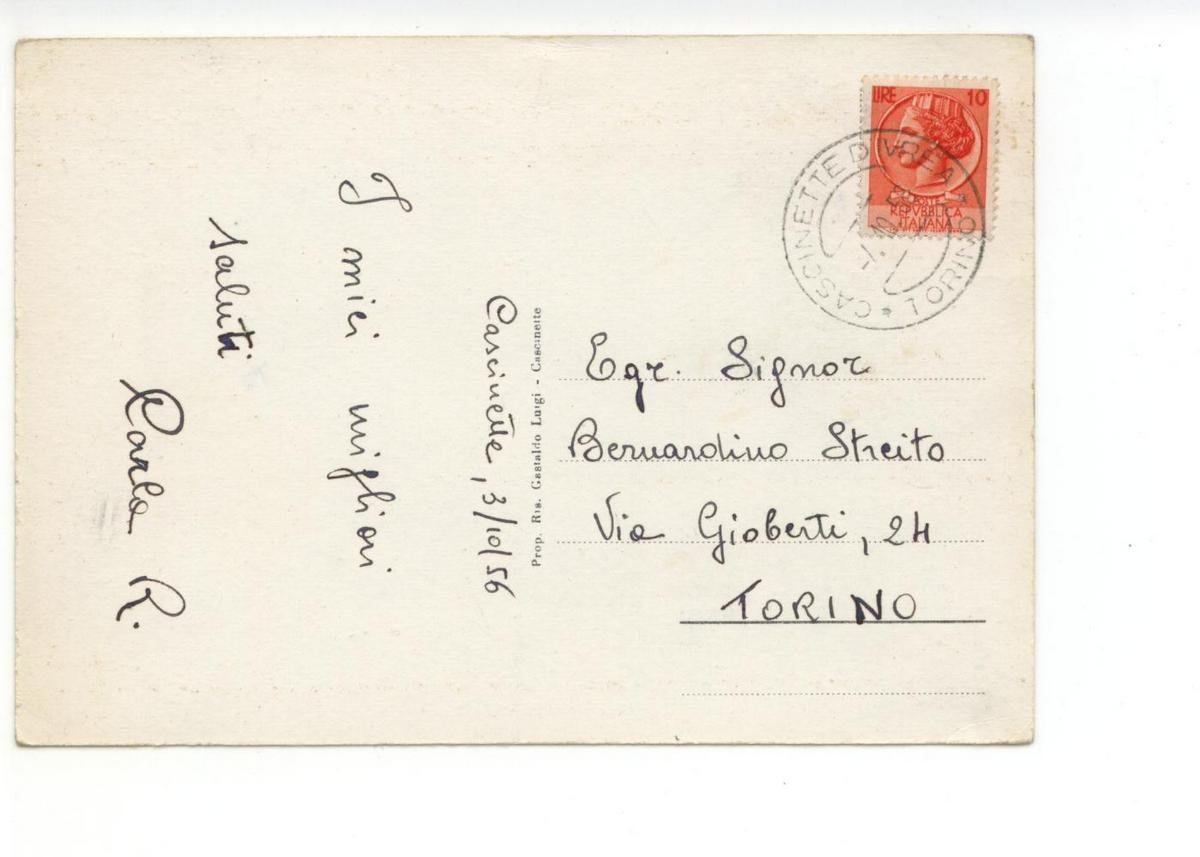 Cascinette, 3/10/56
I miei migliori
saluti
Carla R.
Prop. Ris. Gastaldo Luigi - Cascinette
LIRE 10
POSTE
REPVBBLICA
ITALIANA
CASCINETTE D'IVREA * TORINO *
Egr. Signor
Bernardino Streito
Via Gioberti, 24
TORINO